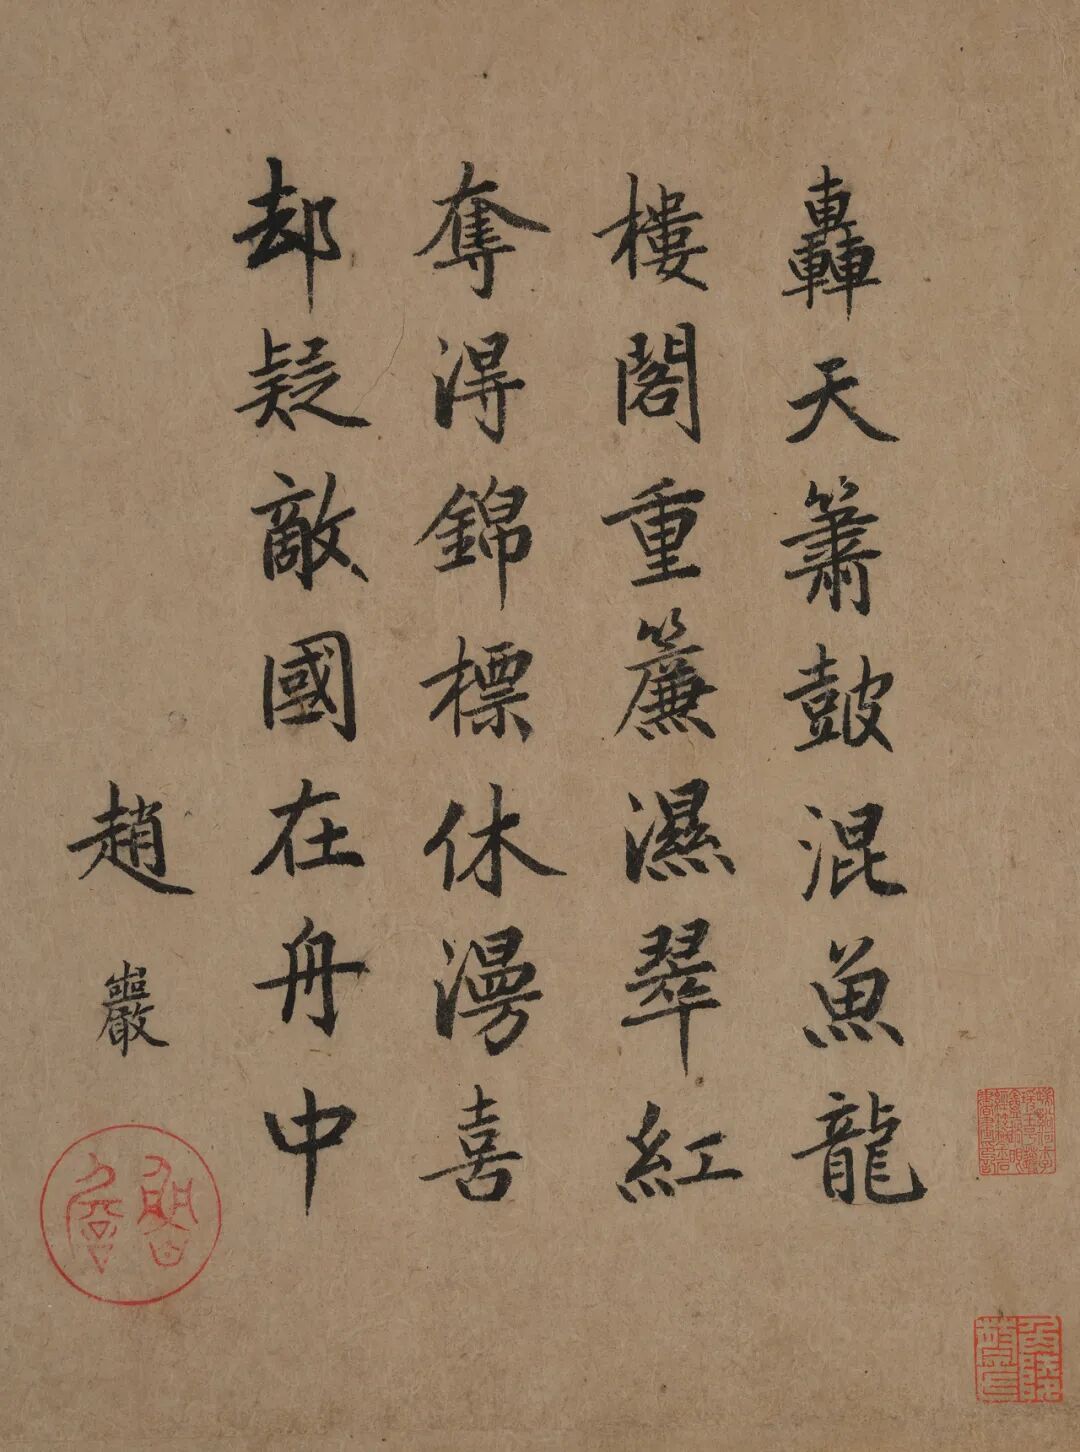 轟天簫鼓混魚龍
樓閣重簾濕翠紅
奪得錦標休漫喜
却疑敵國在舟中
趙巖